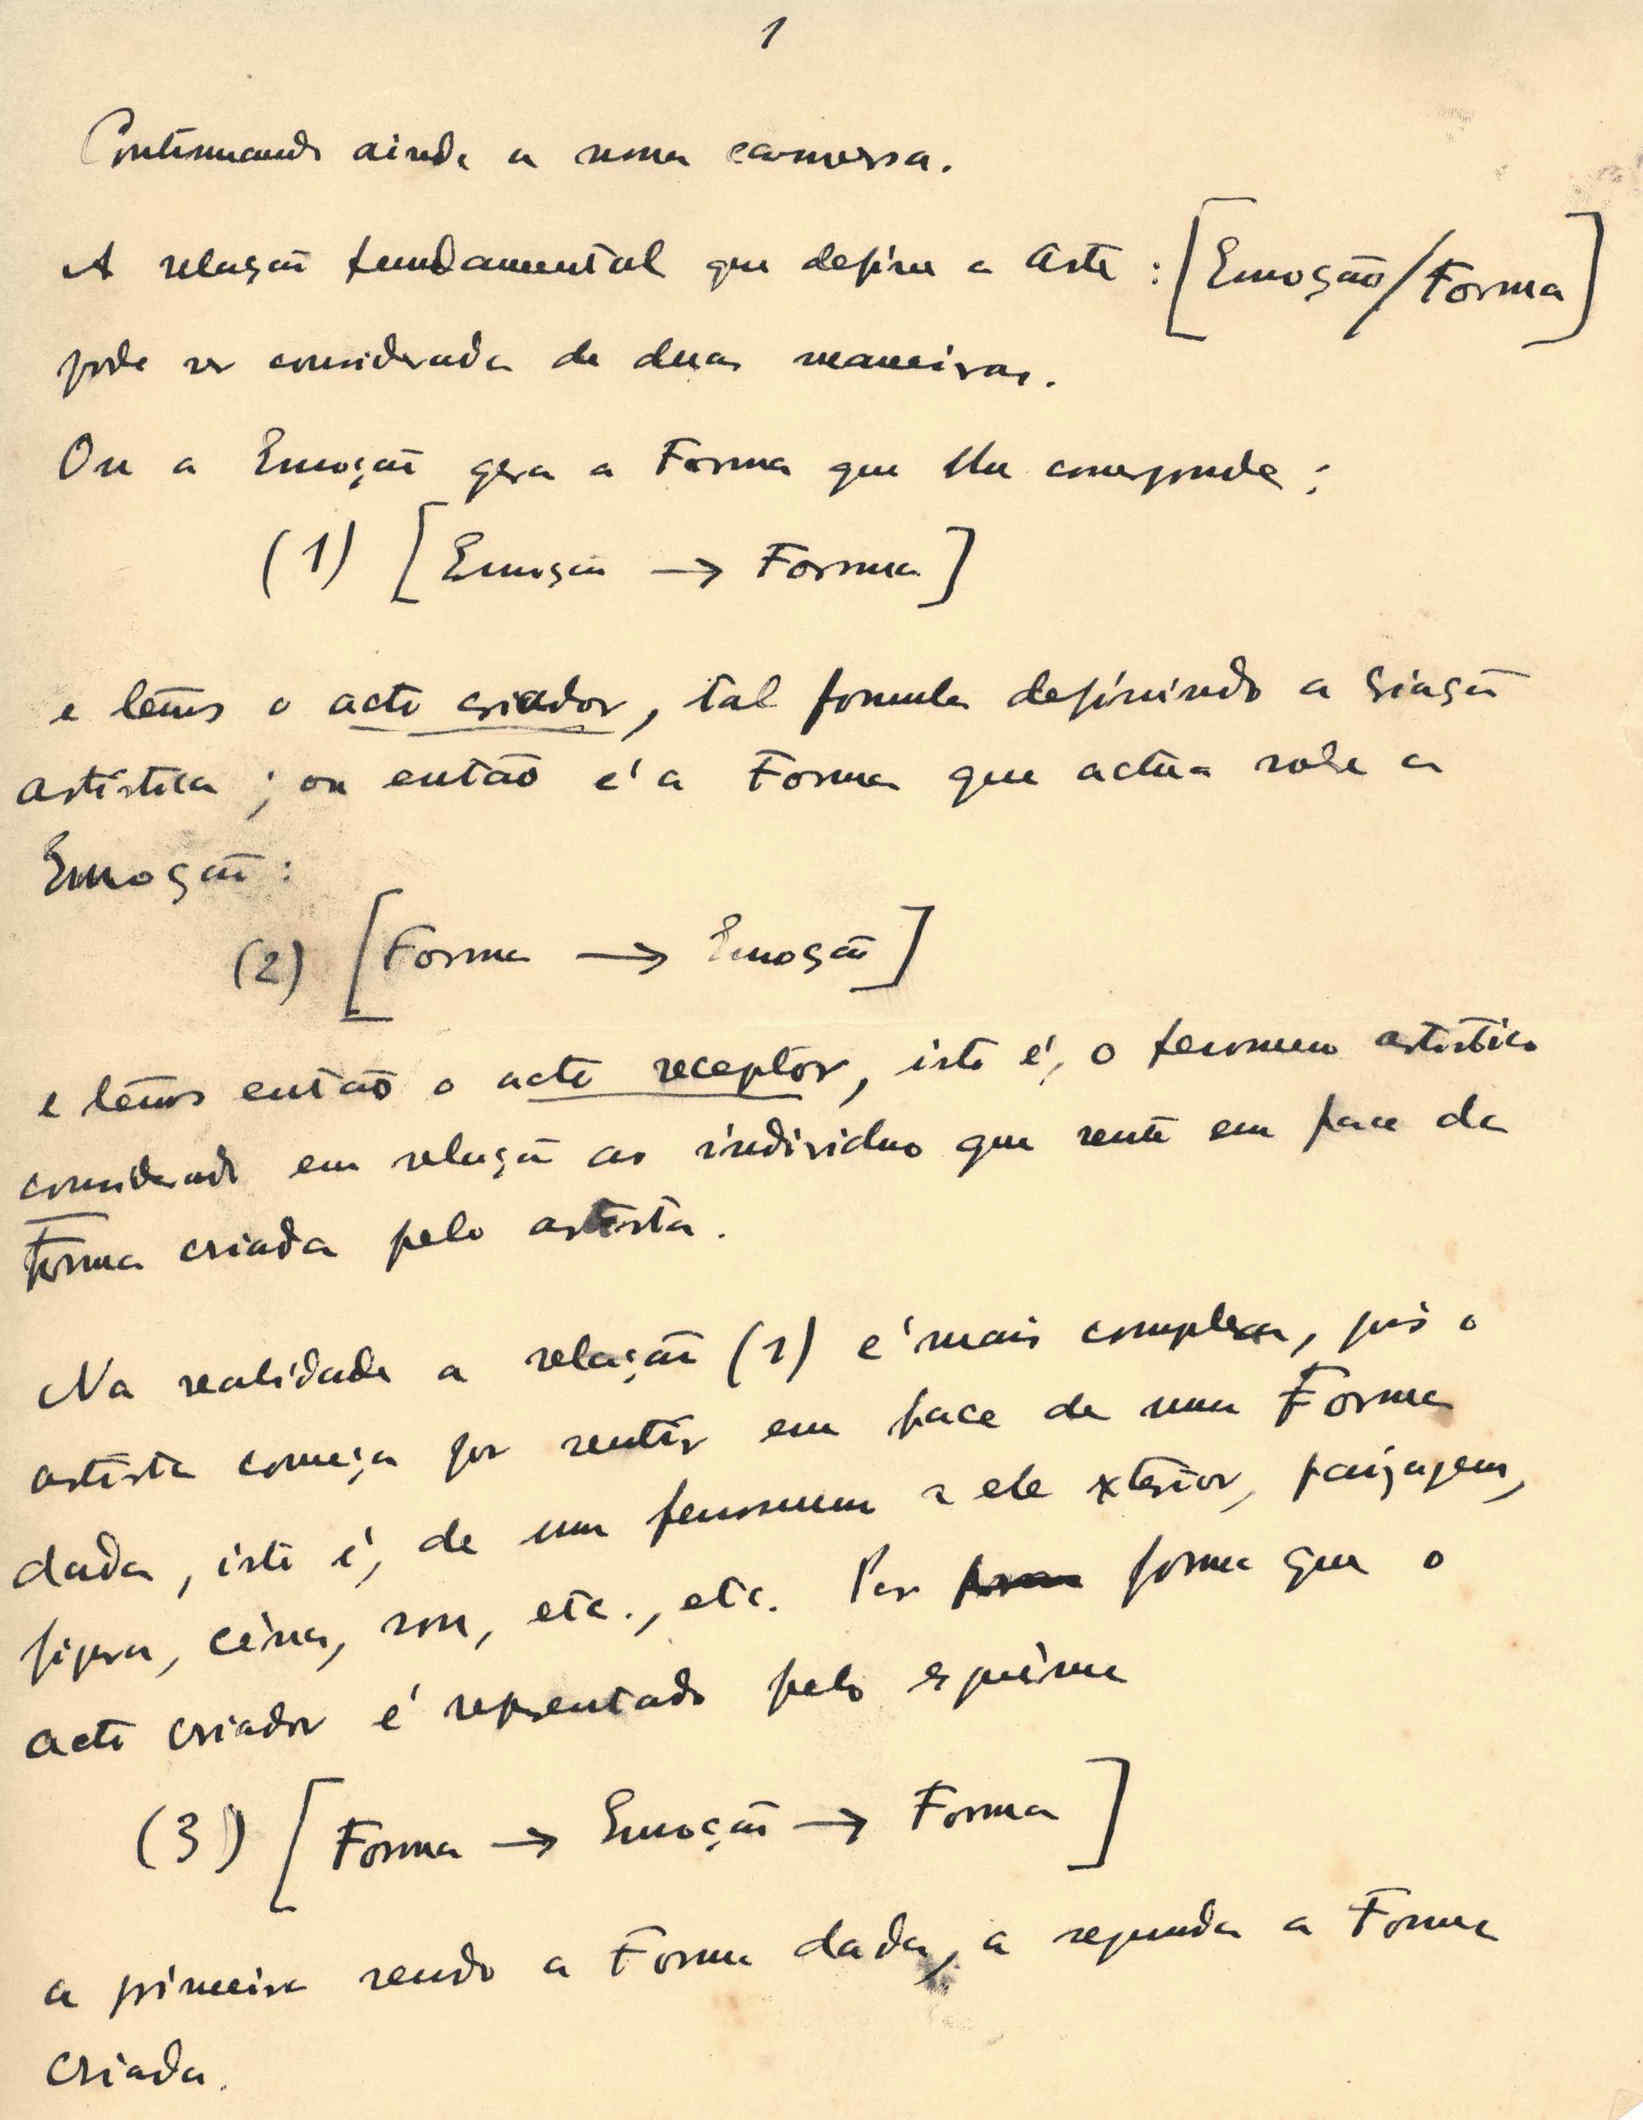 1
Continuando ainda a nossa conversa.
A relação fundamental que define a Arte : [Emoção/Forma]
pode ser considerada de duas maneiras.
Ou a Emoção gera a Forma que lhe corresponde :
(1) [Emoção → Forma]
e temos o acto criador, tal formula definindo a criação
artística ; ou então é a Forma que actua sobre a
Emoção :
(2) [Forma → Emoção]
e temos então o acto receptor, isto é, o fenomeno artístico
considerado em relação ao individuo que sente em face da
Forma criada pelo artista.
Na realidade a relação (1) é mais complexa, pois o
artista começa por sentir em face de uma Forma
dada, isto é, de um fenomeno a ele exterior, paizagem,
figura, céna, som, etc., etc. Por forma que o
acto criador é representado pelo esquêma
(3) [Forma → Emoção → Forma]
a primeira sendo a Forma dada, a segunda a Forma
criada.